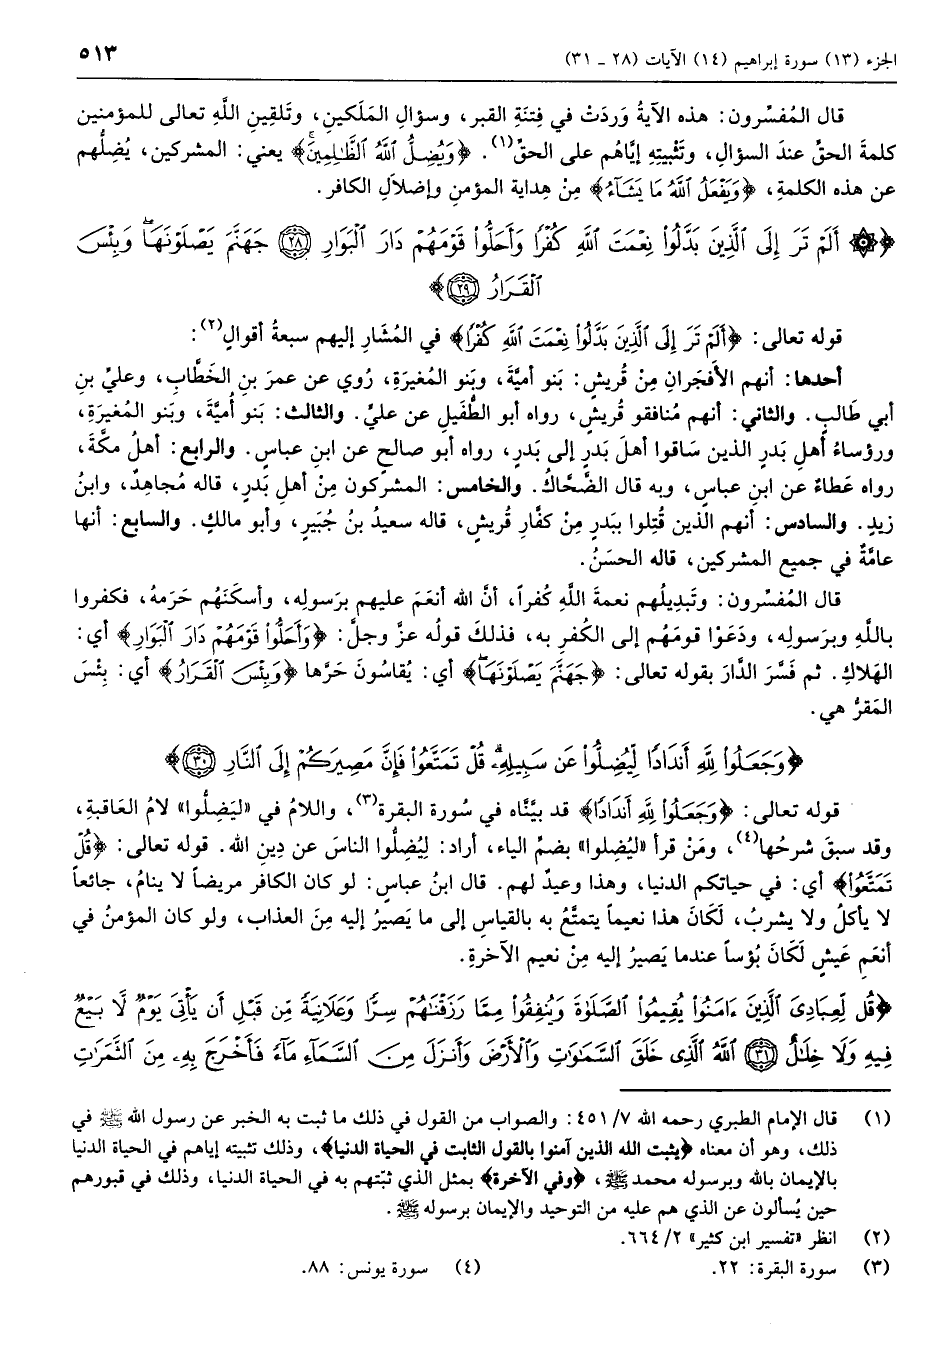 الجزء (١٣) سورة إبراهيم (١٤) الآيات (٢٨ - ٣١) ٥١٣
قال المُفسِّرون: هذه الآيةُ وَردَتْ في فِتنَةِ القبر، وسؤالِ المَلَكينِ، وتَلقِينِ اللَّهِ تعالى للمؤمنين
كلمةَ الحقِّ عندَ السؤالِ، وتَثْبيتِهِ إيَّاهُم على الحقِّ(١). ﴿وَيُضِلُّ ٱللَّهُ ٱلظَّٰلِمِينَۚ﴾ يعني: المشركين، يُضِلُّهم
عن هذه الكلمةِ، ﴿وَيَفْعَلُ ٱللَّهُ مَا يَشَآءُ﴾ مِنْ هِداية المؤمنِ وإضلاَلِ الكافر.
﴿۞ أَلَمْ تَرَ إِلَى ٱلَّذِينَ بَدَّلُوا۟ نِعْمَتَ ٱللَّهِ كُفْرًا وَأَحَلُّوا۟ قَوْمَهُمْ دَارَ ٱلْبَوَارِ ٢٨ جَهَنَّمَ يَصْلَوْنَهَاۖ وَبِئْسَ
ٱلْقَرَارُ ٢٩﴾
قوله تعالى: ﴿أَلَمْ تَرَ إِلَى ٱلَّذِينَ بَدَّلُوا۟ نِعْمَتَ ٱللَّهِ كُفْرًا﴾ في المُشَارِ إليهم سبعةُ أقوالٍ(٢):
أحدها: أنهم الأَفجَرانِ مِنْ قُريشٍ: بَنو أميَّةَ، وبَنو المُغيرَةِ، رُوي عن عمرَ بنِ الخَطَّابِ، وعليِّ بنِ
أبي طَالبٍ. والثاني: أنهم مُنافقو قُريشٍ، رواه أبو الطُّفَيلِ عن عليٍّ. والثالث: بَنو أُميَّةَ، وبَنو المُغيرَةِ،
ورؤساءُ أهلِ بَدرٍ الذين سَاقوا أهلَ بَدرٍ إلى بَدرٍ، رواه أبو صالحٍ عن ابنِ عباسٍ. والرابع: أهلُ مكَّةَ،
رواه عَطاءٌ عن ابنِ عباس، وبه قال الضَّحَّاكُ. والخامس: المشركون مِنْ أهلِ بَدرٍ، قاله مُجاهدٌ، وابنُ
زيدٍ. والسادس: أنهم الذين قُتِلوا ببَدرٍ مِنْ كفَّارِ قُريشٍ، قاله سعيدُ بنُ جُبَيرٍ، وأبو مالكٍ. والسابع: أنها
عامَّةٌ في جميعِ المشركين، قاله الحسَنُ.
قال المُفسِّرون: وتَبدِيلُهم نعمةَ اللَّهِ كُفراً، أنَّ الله أنعَمَ عليهم برَسولِه، وأسكَنَهُم حَرَمهُ، فكفروا
باللَّهِ وبرَسولِه، ودَعَوْا قومَهُم إلى الكُفرِ به، فذلكَ قولُه عزَّ وجلَّ: ﴿وَأَحَلُّوا۟ قَوْمَهُمْ دَارَ ٱلْبَوَارِ﴾ أي:
الهَلاكِ. ثم فَسَّرَ الدَّارَ بقوله تعالى: ﴿جَهَنَّمَ يَصْلَوْنَهَاۖ﴾ أي: يُقاسُونَ حَرَّها ﴿وَبِئْسَ ٱلْقَرَارُ﴾ أي: بِئْسَ
المَقرُّ هي.
﴿وَجَعَلُوا۟ لِلَّهِ أَندَادًا لِّيُضِلُّوا۟ عَن سَبِيلِهِۦۗ قُلْ تَمَتَّعُوا۟ فَإِنَّ مَصِيرَكُمْ إِلَى ٱلنَّارِ ٣٠﴾
قوله تعالى: ﴿وَجَعَلُوا۟ لِلَّهِ أَندَادًا﴾ قد بيَّنَّاه في سُورة البقرة(٣)، واللامُ في «ليَضِلُّوا» لامُ العَاقبةِ،
وقد سبقَ شرحُها(٤)، ومَنْ قرأ «ليُضِلوا» بضمِّ الياء، أراد: لِيُضِلُّوا الناسَ عن دِينِ الله. قوله تعالى: ﴿قُلْ
تَمَتَّعُوا۟﴾ أي: في حياتكم الدنيا، وهذا وعيدٌ لهم. قال ابنُ عباس: لو كان الكافر مريضاً لا ينامُ، جائعاً
لا يأكلُ ولا يشربُ، لَكَانَ هذا نعيماً يتمتَّعُ به بالقياسِ إلى ما يَصيرُ إليه مِنَ العذاب، ولو كان المؤمنُ في
أنعَمِ عَيشٍ لَكَانَ بُؤساً عندما يَصيرُ إليه مِنْ نعيم الآخرةِ.
﴿قُل لِّعِبَادِىَ ٱلَّذِينَ ءَامَنُوا۟ يُقِيمُوا۟ ٱلصَّلَوٰةَ وَيُنفِقُوا۟ مِمَّا رَزَقْنَٰهُمْ سِرًّا وَعَلَانِيَةً مِّن قَبْلِ أَن يَأْتِىَ يَوْمٌ لَّا بَيْعٌ
فِيهِ وَلَا خِلَٰلٌ ٣١ ٱللَّهُ ٱلَّذِى خَلَقَ ٱلسَّمَٰوَٰتِ وَٱلْأَرْضَ وَأَنزَلَ مِنَ ٱلسَّمَآءِ مَآءً فَأَخْرَجَ بِهِۦ مِنَ ٱلثَّمَرَٰتِ
(١) قال الإمام الطبري رحمه الله ٧/ ٤٥١: والصواب من القول في ذلك ما ثبت به الخبر عن رسول الله ﷺ في
ذلك، وهو أن معناه ﴿يثبت الله الذين آمنوا بالقول الثابت في الحياة الدنيا﴾، وذلك تثبيته إياهم في الحياة الدنيا
بالإيمان بالله وبرسوله محمد ﷺ، ﴿وفي الآخرة﴾ بمثل الذي ثبّتهم به في الحياة الدنيا، وذلك في قبورهم
حين يُسألون عن الذي هم عليه من التوحيد والإيمان برسوله ﷺ.
(٢) انظر «تفسير ابن كثير» ٢/ ٦٦٤.
(٣) سورة البقرة: ٢٢. (٤) سورة يونس: ٨٨.